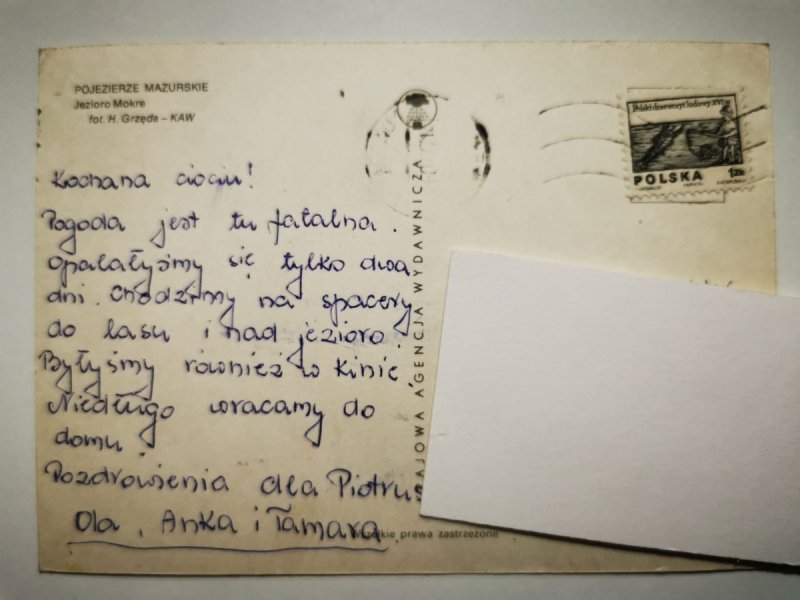 POJEZIERZE MAZURSKIE
Jezioro Mokre
fot. H. Grzęda – KAW
Polski drzeworyt ludowy XVI
POLSKA 1ZŁ
Kochana ciociu!
Pogoda jest tu fatalna.
Opalałyśmy się tylko dwa
dni. Chodzimy na spacery
do lasu i nad jezioro.
Byłyśmy również w kinie.
Niedługo wracamy do
domu.
Pozdrowienia dla Piotrus
Ola, Anka i Tamara.
AJOWA AGENCJA WYDAWNICZA
Wszelkie prawa zastrzeżone